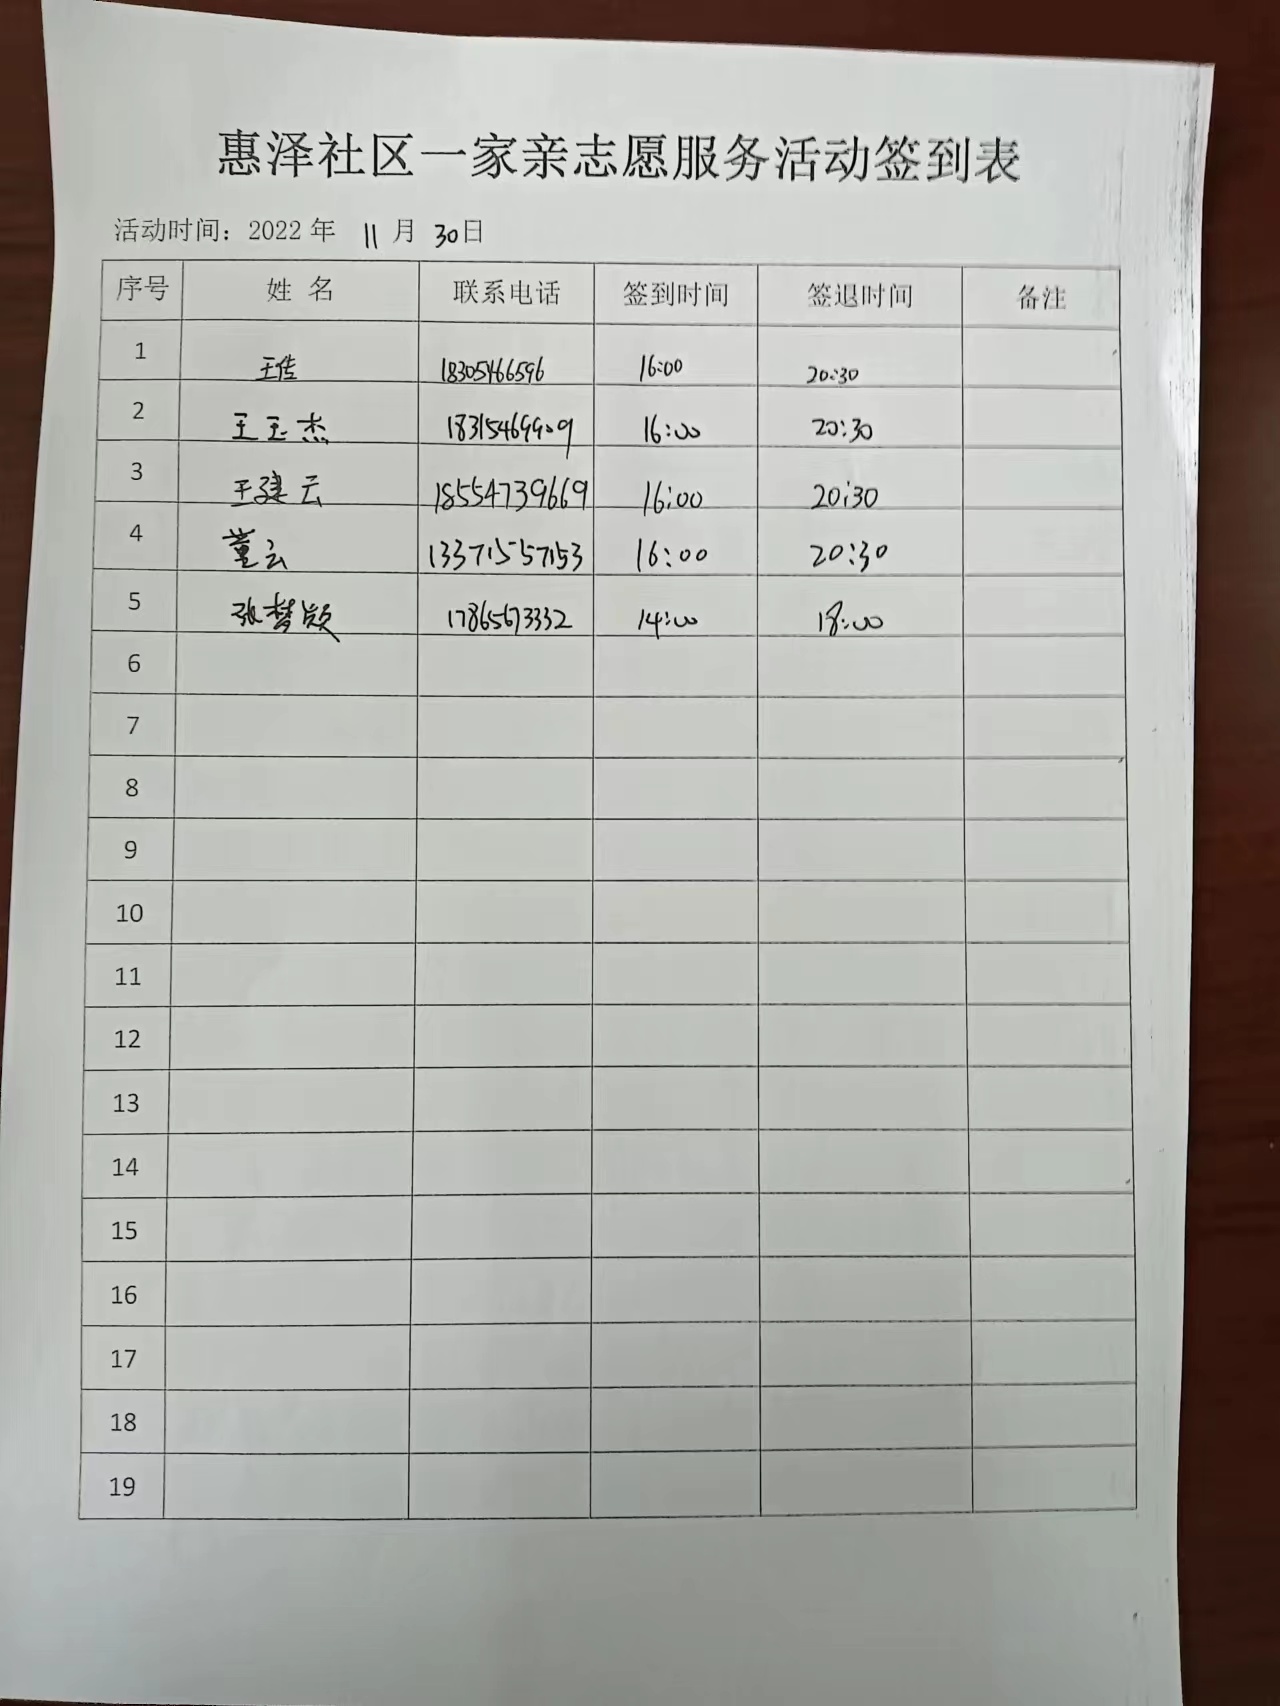 惠泽社区一家亲志愿服务活动签到表
活动时间：2022 年 11 月 30日
序号 姓 名 联系电话 签到时间 签退时间 备注
1 王佳 18305466596 16:00 20:30
2 王玉杰 18315469909 16:00 20:30
3 王建云 18554739669 16:00 20:30
4 董云 13371557153 16:00 20:30
5 张梦颖 17865673332 14:00 18:00
6
7
8
9
10
11
12
13
14
15
16
17
18
19